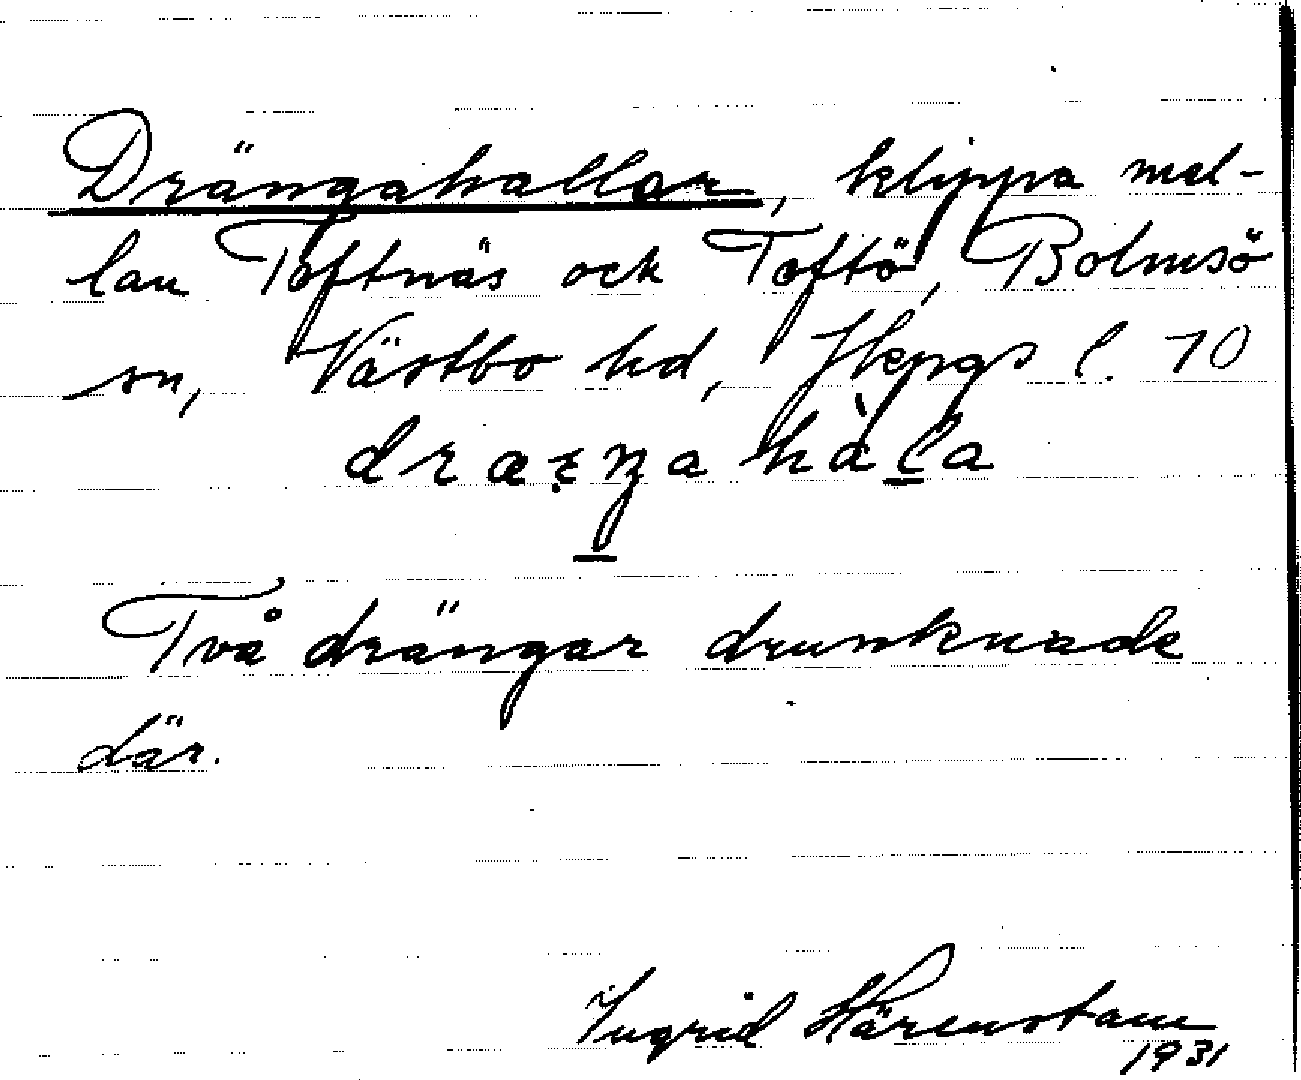 Drängahallar, klippa mel-
lan Toftnäs och Toftö, Bolmsö
sn, Västbo hd, Jkpgs l. 10
Två drängar drunknade
där.
Ingrid Härenstam
1931